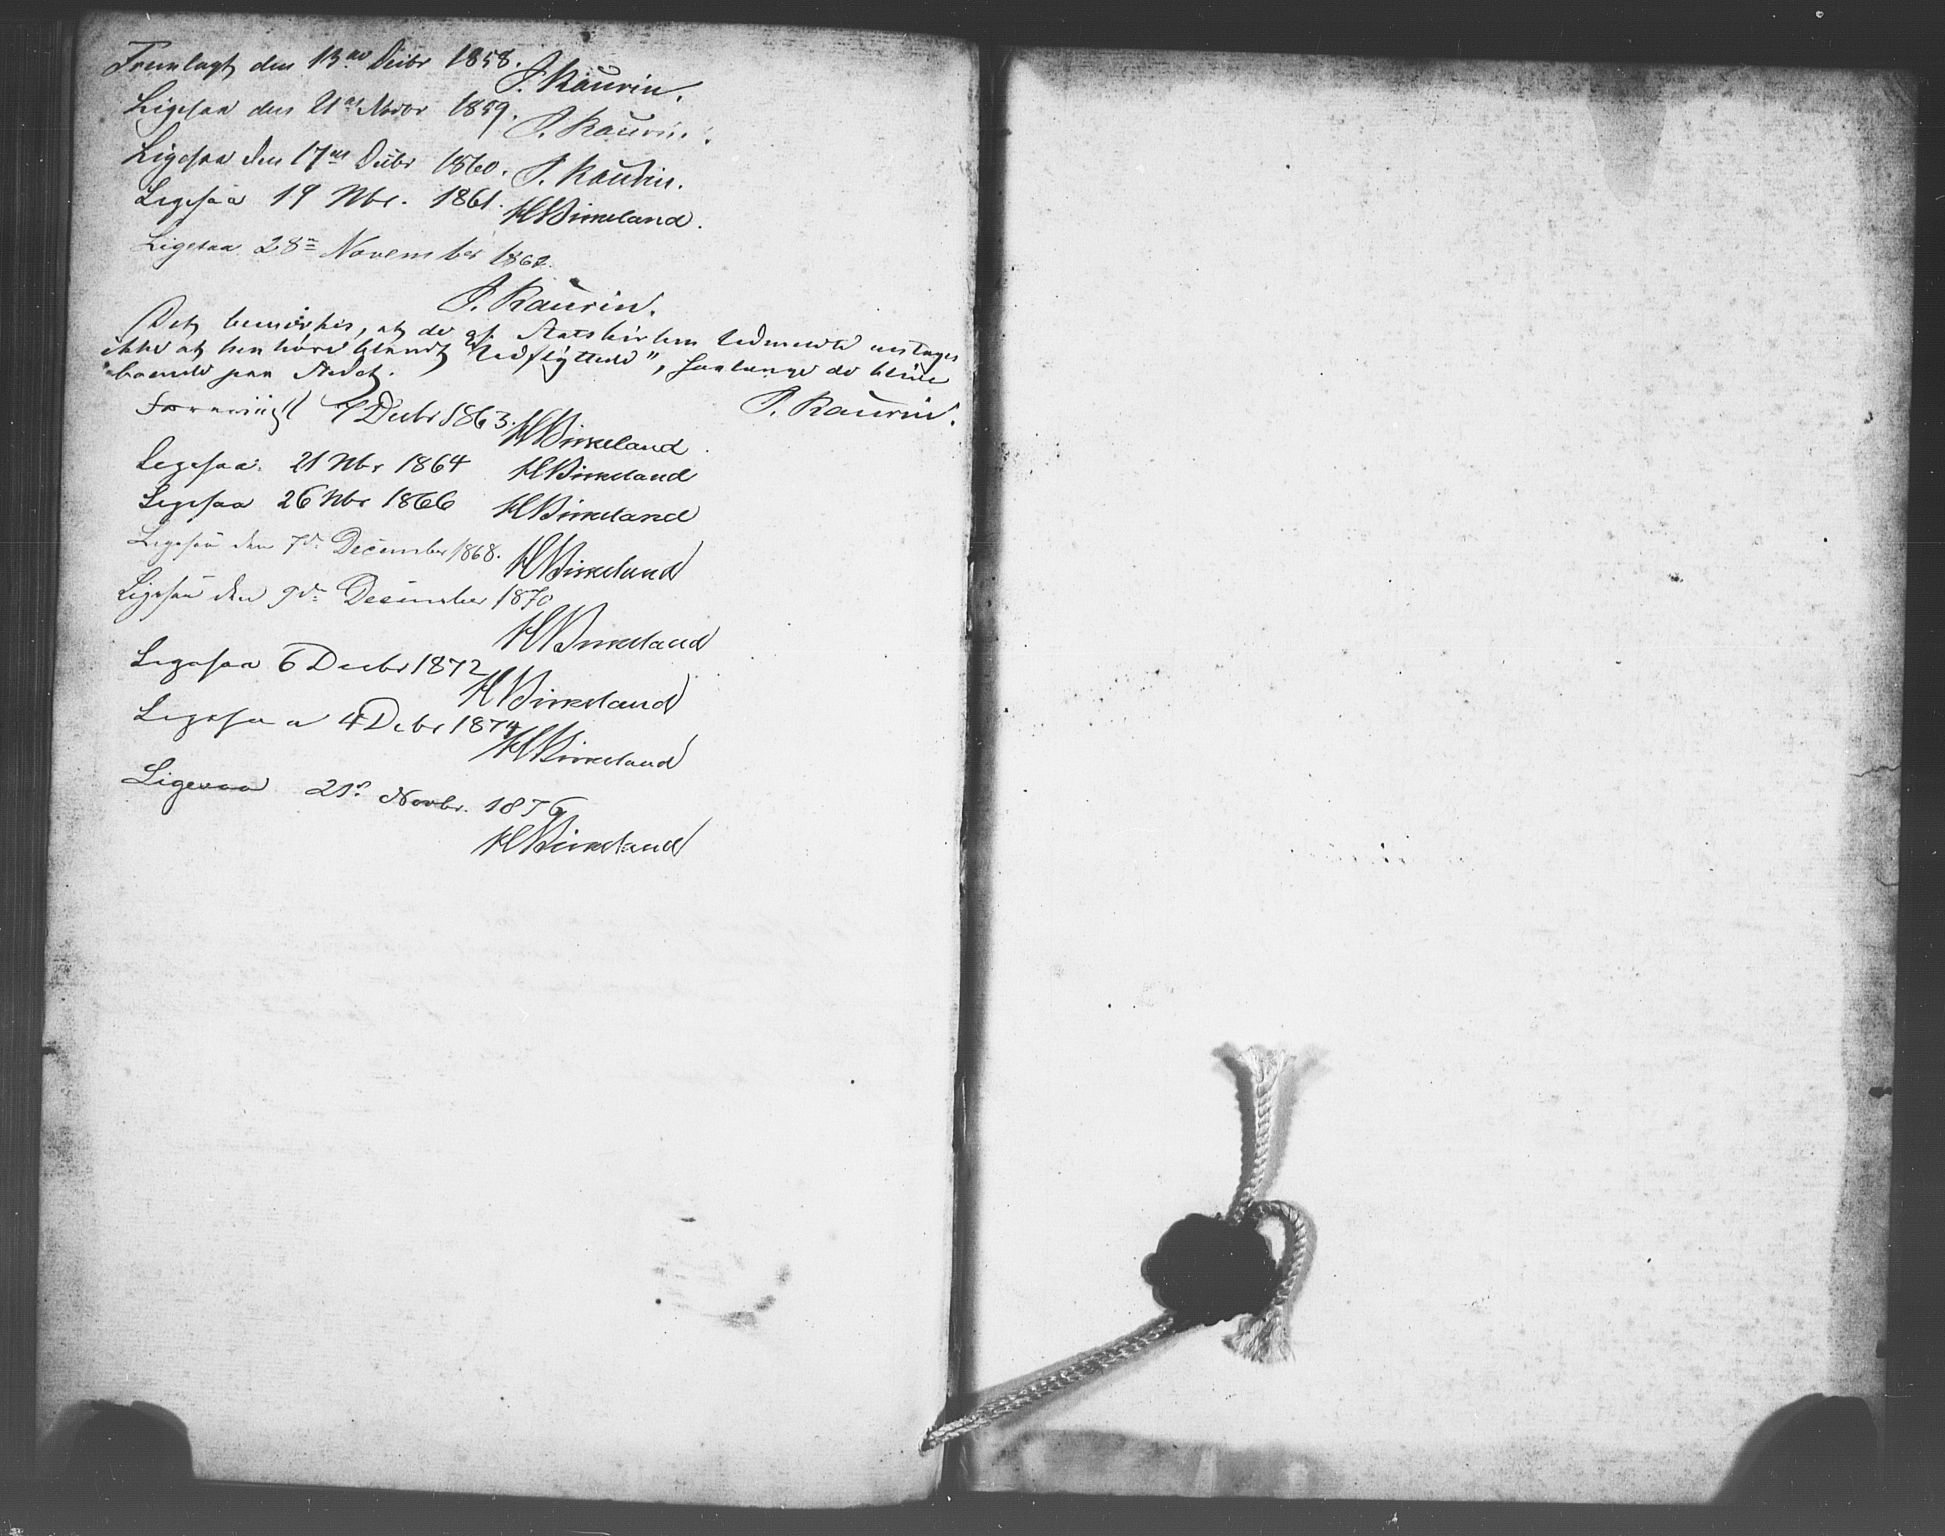 Fremlagt den 13de Decbr 1858. J. Kaurin.
Ligesaa den 21de Novbr 1859. J. Kaurin.
Ligesaa den 17de Decbr 1860. J. Kaurin.
Ligesaa 19 Nbr. 1861. H Birkeland.
Ligesaa 28de November 1862.
J. Kaurin.
Det bemærkes, at de af Statskirken Udmeldte antages
ikke at henhøre blandt "Udflyttede", saalænge de blive
boende paa Stedet.
J. Kaurin.
Foreviist 7 Decbr 1863. H Birkeland
Ligesaa 21 Nbr 1864 H Birkeland
Ligesaa 26 Nbr 1866 H Birkeland
Ligesaa den 7de December 1868. H Birkeland
Ligesaa den 9de December 1870
H Birkeland
Ligesaa 6 Decbr 1872
H Birkeland
Ligesaa 4 Debr 1874
H Birkeland
Ligesaa 21de Novbr. 1876
H Birkeland